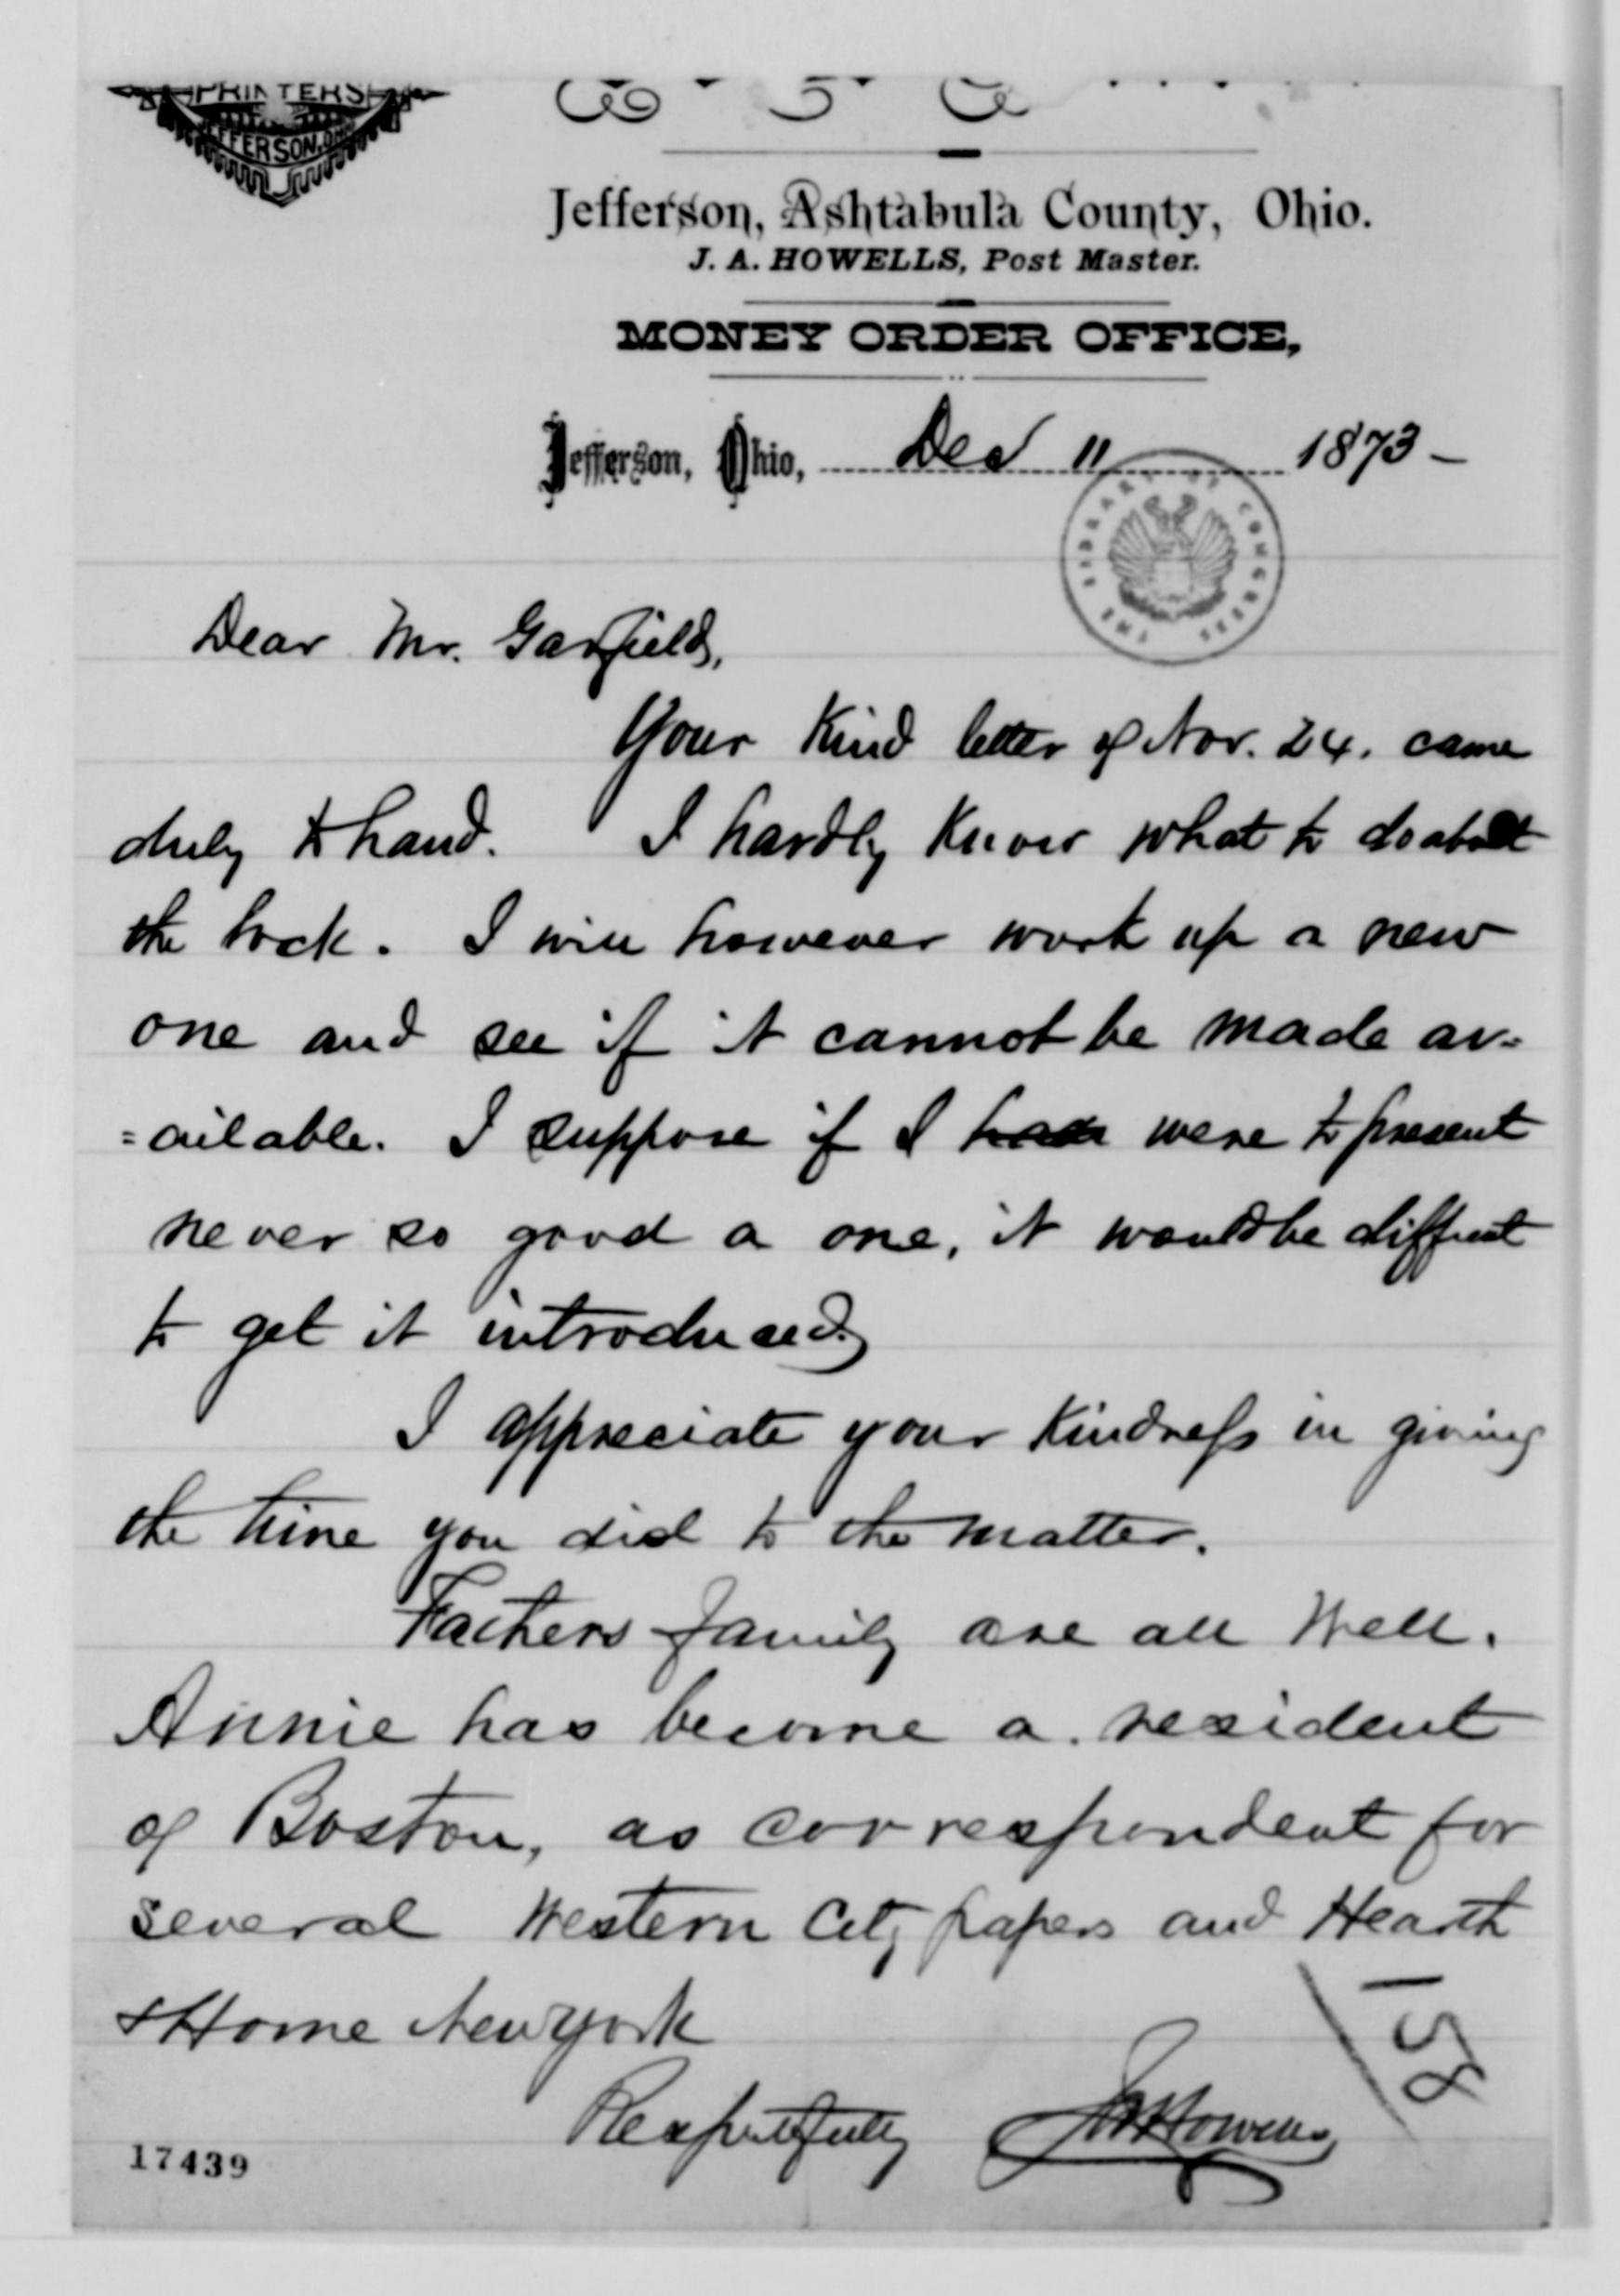 PRINTERS
JEFFERSON, OHIO
Jefferson, Ashtabula County, Ohio.
J. A. HOWELLS, Post Master.
MONEY ORDER OFFICE,
Jefferson, Ohio, Dec 11 1873-
THE LIBRARY OF CONGRESS
Dear Mr. Garfield,
Your Kind letter of Nov. 24. came
duly to hand. I hardly Know what to do about
the lock. I will however work up a new
one and see if it cannot be made av=
=ailable. I suppose if I were to present
never so good a one, it would be difficult
to get it introduced,
I appreciate your Kindness in giving
the time you did to the matter.
Fathers family are all Well.
Annie has become a resident
of Boston, as correspondent for
several Western City papers and Hearth
& Home New York
Respectfully JAHowells
158
17439